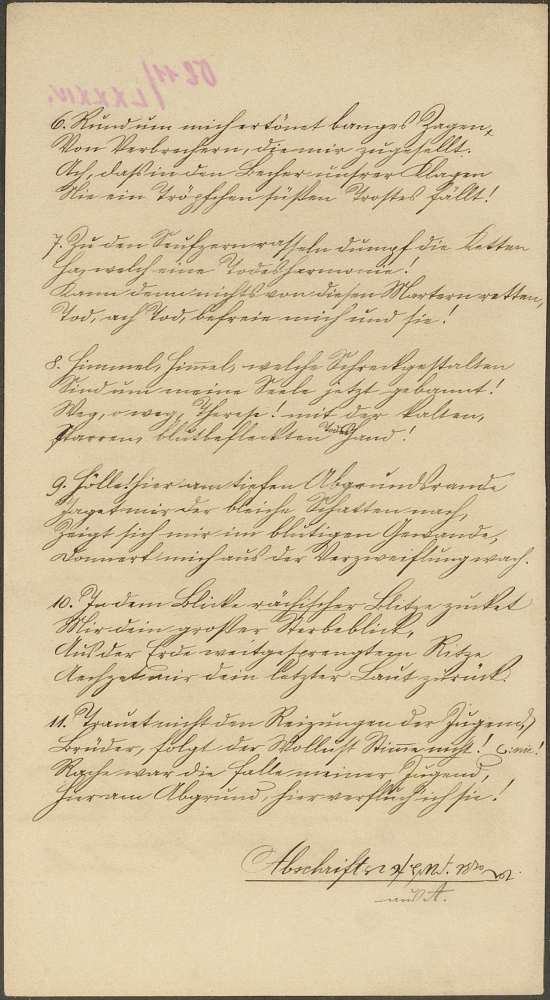 6. Rund um mich ertönet banges Zagen,
Von Verbrechern, die mir zugesellt.
Ach, daß in den Becher unsrer Klagen
Nie ein Tröpfchen süßen Trostes fällt!
7. Zu den Seufzern rasseln dumpf die Ketten
Ha, welch eine Todesharmonie!
Kann denn nichts von diesen Martern retten,
Tod, ach Tod, befreie mich und sie!
8. Himmel, Himmel, welche Schreckgestalten
Sind um meine Seele jetzt gebannt!
Weg, o weg, Therese! mit der kalten,
Starren, blutbefleckten Todeshand!
9. Hölle! hier am tiefen Abgrundsrande
Jaget mir der bleiche Schatten nach,
Zeigt sich mir im blutigen Gewande,
Donnert mich aus der Verzweiflung wach.
10. In dem Blicke rächischer Blitze zucket
Mir dein großer Sterbeblick,
Aus der Erde weitgesprengtem Ritze
Aechzet mir dein letzter Laut zurück.
11. Trauet nicht den Reizungen der Jugend,
Brüder, folgt der Wollust Stimme nicht!
Rache war die Falle meiner Jugend,
Hier am Abgrund, hier verfluch ich sie!
Abschrift